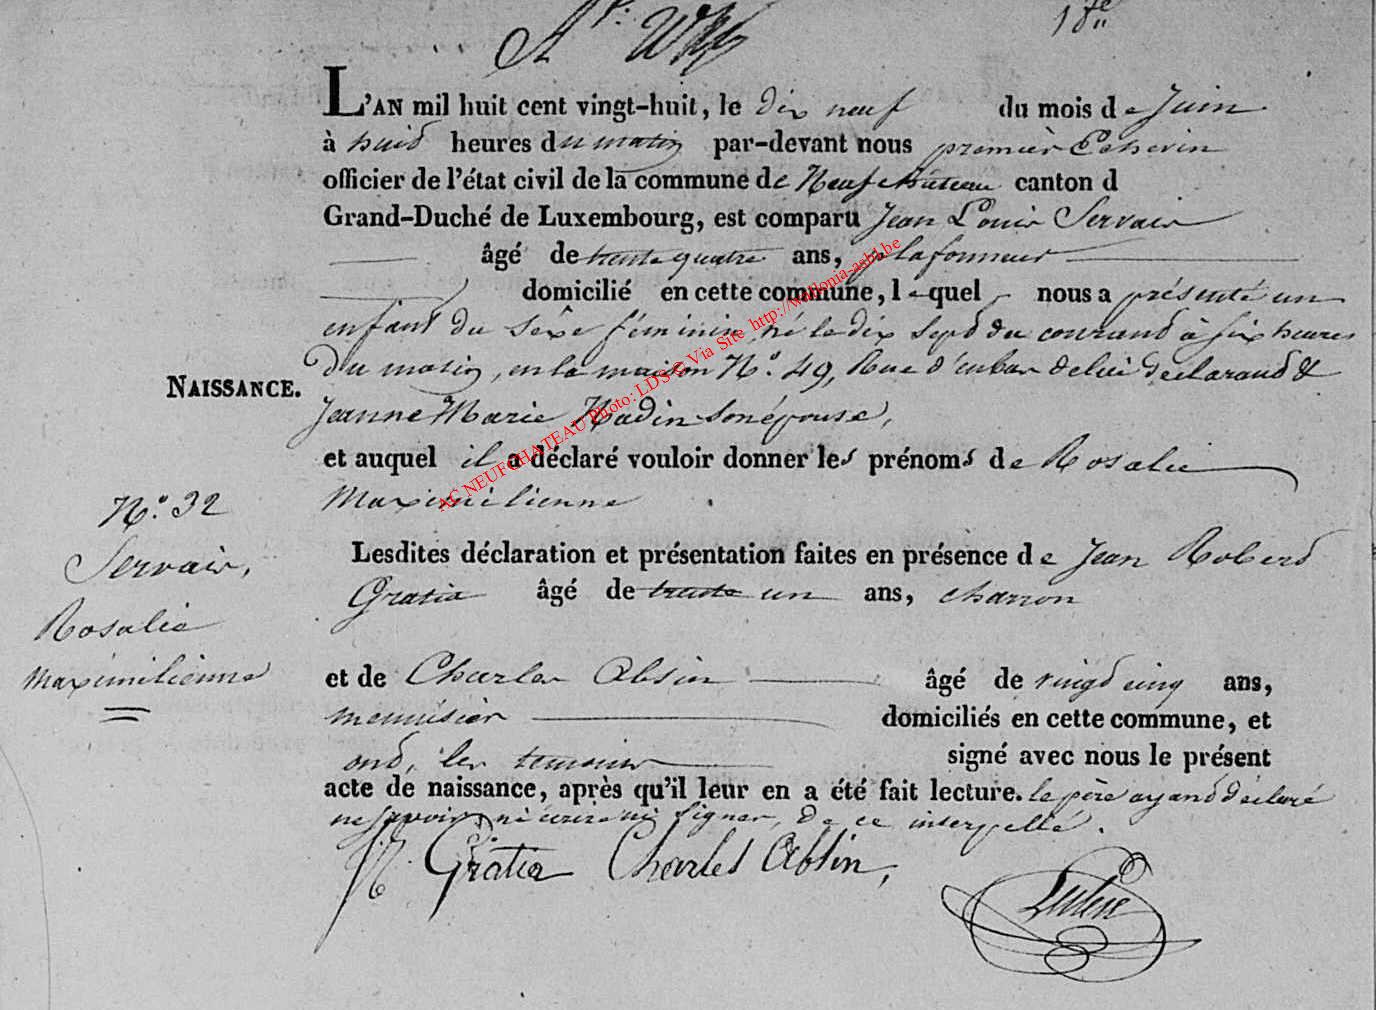 L'AN mil huit cent vingt-huit, le dix neuf du mois de Juin
à huit heures du matin par-devant nous premier Echevin
officier de l'état civil de la commune de Neufchâteau canton d
Grand-Duché de Luxembourg, est comparu Jean Louis Servais
âgé de trente quatre ans, plafonneur
domicilié en cette commune, lequel nous a présenté un
enfant du sexe féminin, né le dix sept du courant à six heures
du matin, en la maison N.° 49, Rue d'enbas de lui déclarant &
Jeanne Marie Nadin son épouse,
NAISSANCE.
et auquel il a déclaré vouloir donner les prénoms de Rosalie
Maximilienne
N.° 32
Servais,
Rosalie
Maximilienne
Lesdites déclaration et présentation faites en présence de Jean Robert
Gratia âgé de trente un ans, charron
et de Charles Absin âgé de vingt cinq ans,
menuisier domiciliés en cette commune, et
ont, les temoins signé avec nous le présent
acte de naissance, après qu'il leur en a été fait lecture. le père ayant déclaré
ne savoir ni écrire ni signer, de ce interpellé.
Gratia Charles Absin,
AC NEUFCHATEAU Photo: LDS © Via Site http://wallonia-asbl.be